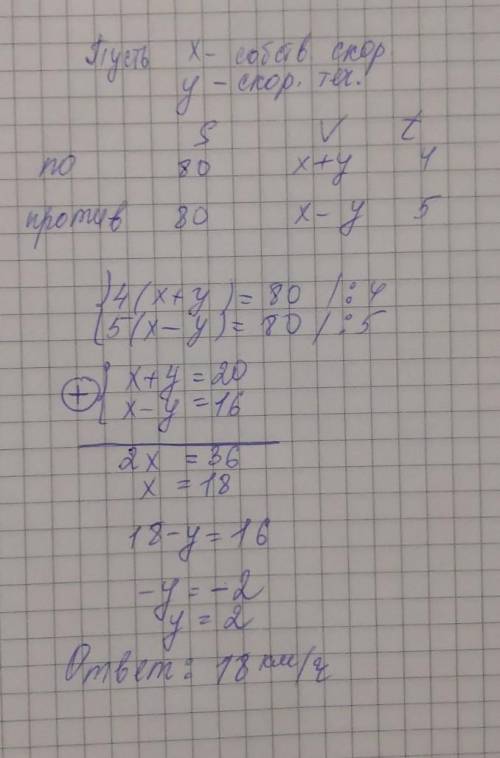 Пусть x - собств скор
y - скор. теч.
S V t
по 80 x+y 4
против 80 x-y 5
{4(x+y)=80 /:4
{5(x-y)=80 /:5
⊕ { x+y=20
x-y=16
2x =36
x =18
18-y=16
-y=-2
y=2
Ответ: 18 км/ч